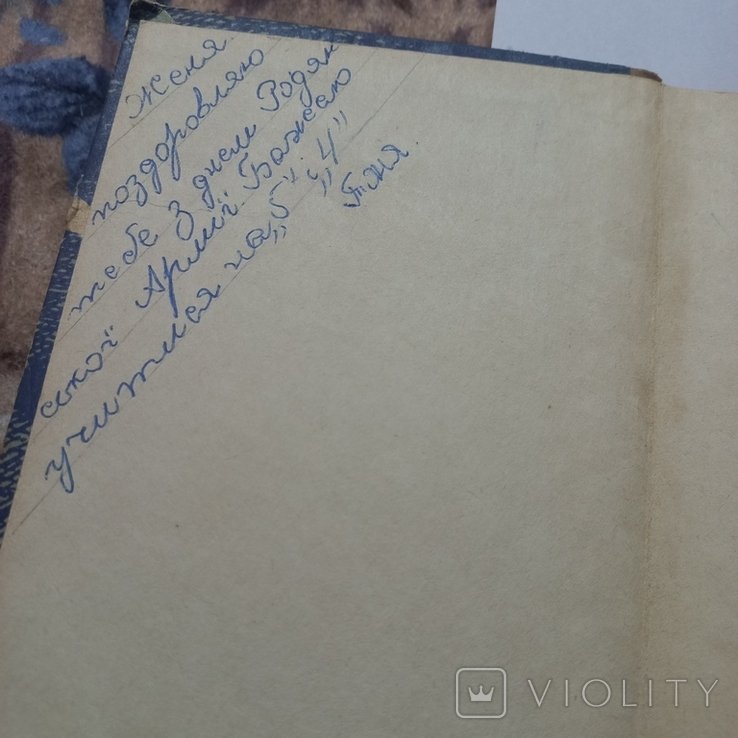 Женя
поздоровляю
тебе з днем Родян
ської Армії. Бажаю
учитися на „5" і „4"
Таня.
VIOLITY